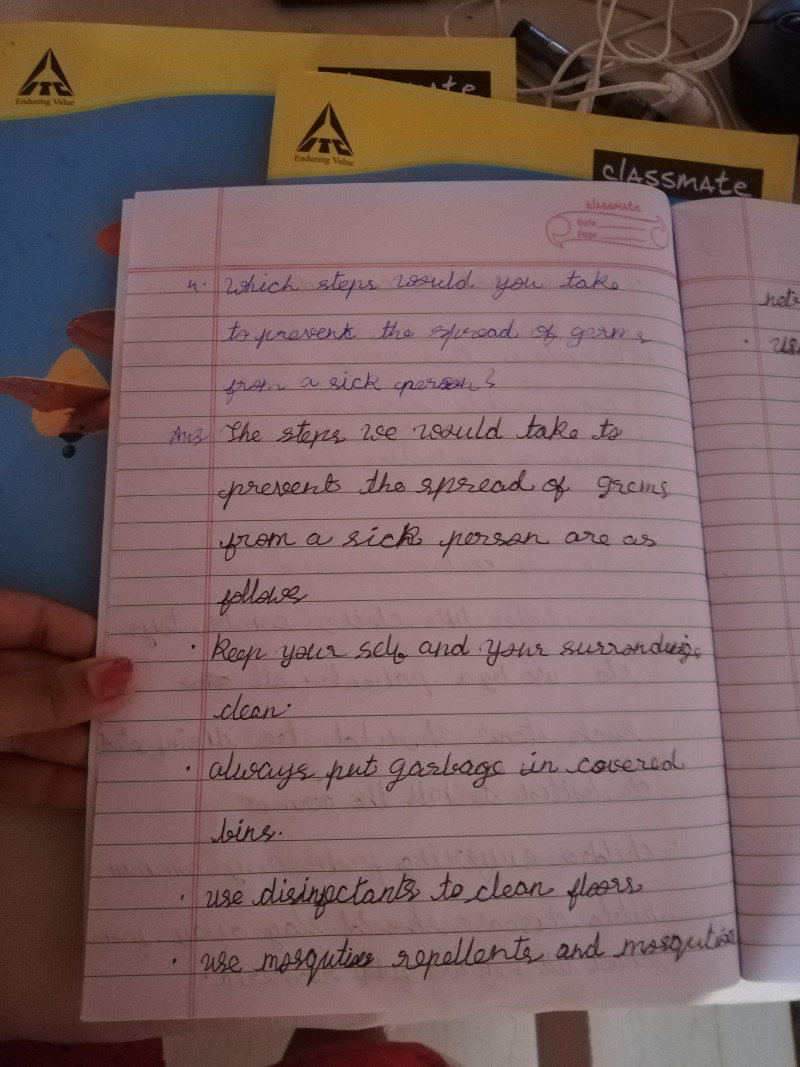 ITC
Enduring Value
ITC
Enduring Value
classmate
classmate
Date
Page
4. Which steps would you take
to prevent the spread of germs
from a sick person?
Ans The steps we would take to
prevents the spread of grems
from a sick person are as
follows
• Keep your self and your surrondings
clean.
• always put garbage in covered
bins.
• use disinfectants to clean floors
• use mosqutios repellents and mosqutios
nets
• use